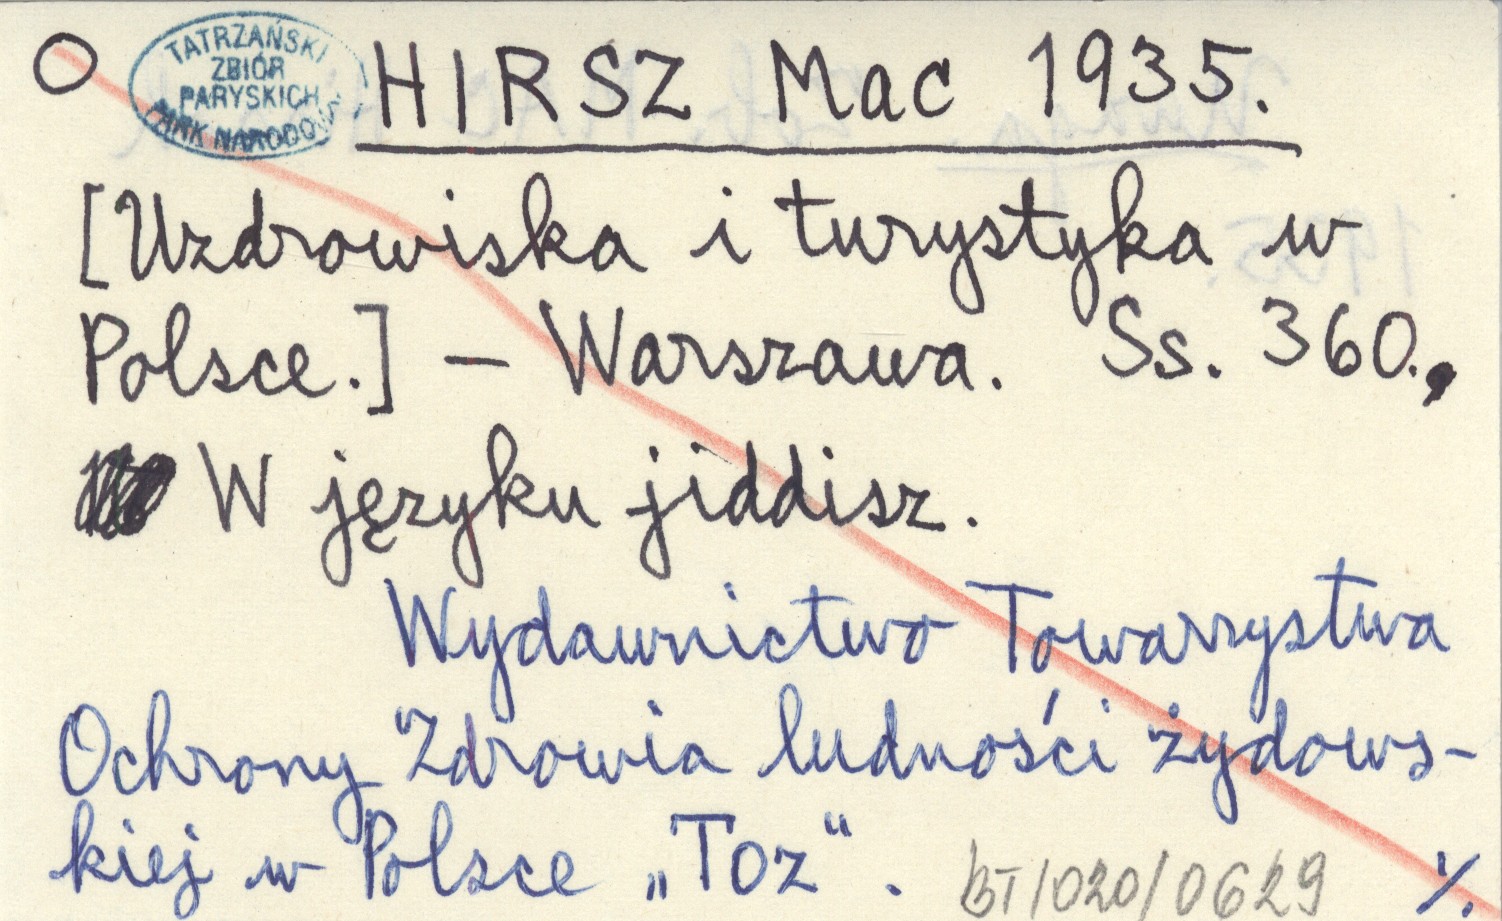 TATRZAŃSKI
ZBIÓR
PARYSKICH
PARK NARODOWY
HIRSZ Mac 1935.
[Uzdrowiska i turystyka w
Polsce.] – Warszawa. Ss. 360.,
W języku jiddisz.
Wydawnictwo Towarzystwa
Ochrony Zdrowia ludności żydows-
kiej w Polsce „Toz“.
BT/020/0629 ٪.